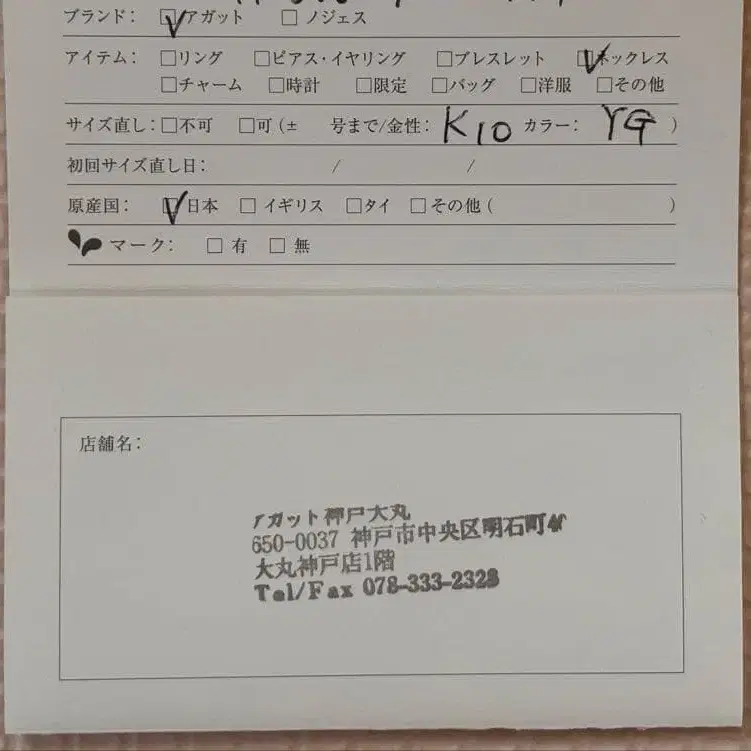 ブランド： □アガット □ ノジェス
アイテム： □リング □ピアス・イヤリング □ブレスレット □ネックレス
□チャーム □時計 □限定 □バッグ □洋服 □その他
サイズ直し：□不可 □可（± 号まで/金性： K10 カラー： YG ）
初回サイズ直し日： / /
原産国： □日本 □ イギリス □タイ □その他（ ）
マーク： □ 有 □ 無
店舗名：
アガット神戸大丸
650-0037 神戸市中央区明石町40
大丸神戸店1階
Tel/Fax 078-333-2328